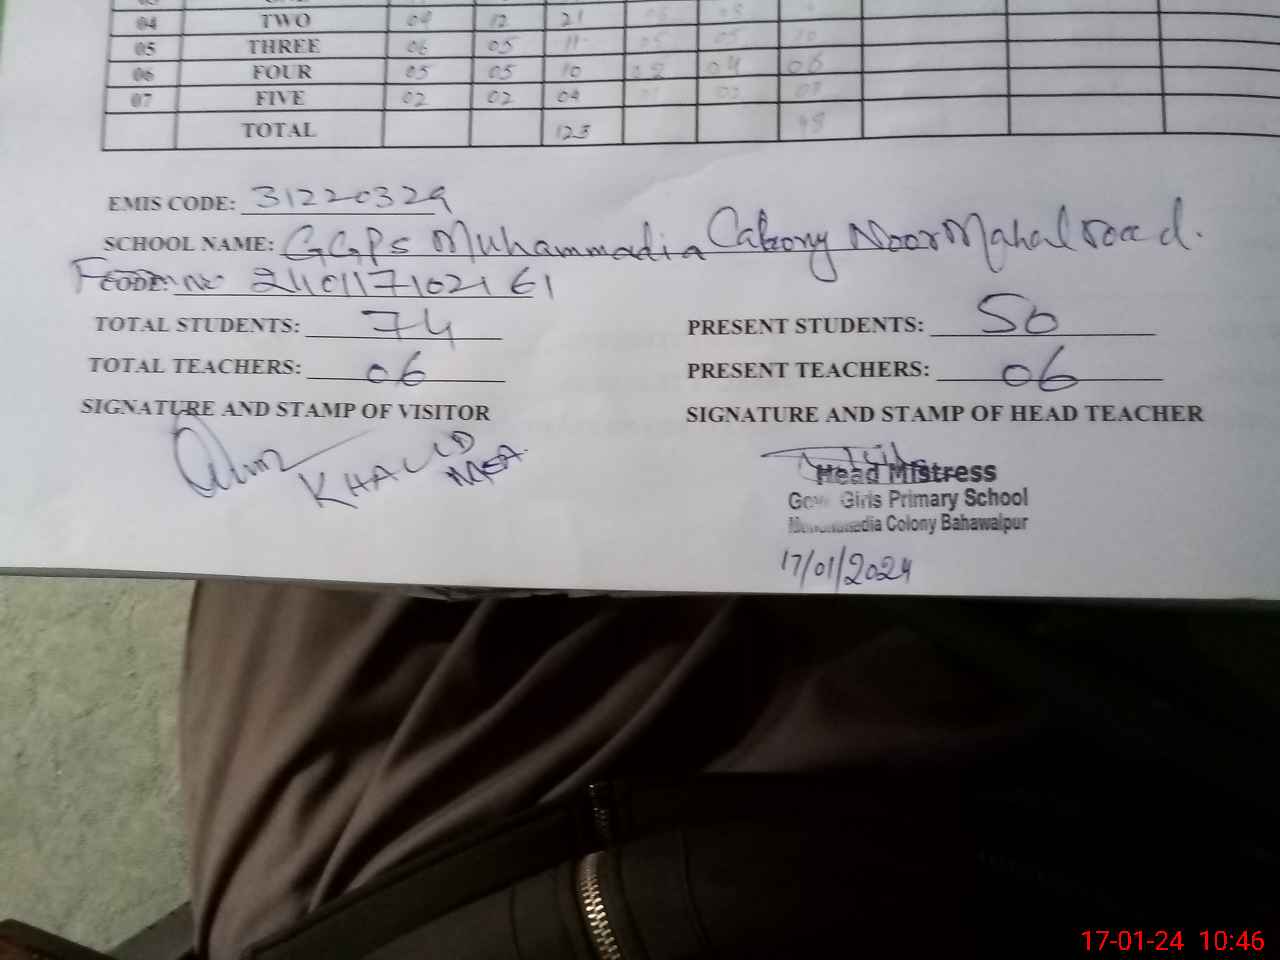 04 TWO 09 12 21
05 THREE 06 05 11 05 05 10
06 FOUR 05 05 10 02 04 06
07 FIVE 02 02 04
TOTAL 123
EMIS CODE: 31220329
SCHOOL NAME: GGPS Muhammadia Colony Noor Mahal road.
CODE:
TOTAL STUDENTS: 74 PRESENT STUDENTS: 50
TOTAL TEACHERS: 06 PRESENT TEACHERS: 06
SIGNATURE AND STAMP OF VISITOR SIGNATURE AND STAMP OF HEAD TEACHER
KHALID
MEA.
Head Mistress
Girls Primary School
Colony Bahawalpur
17/01/2024
17-01-24 10:46